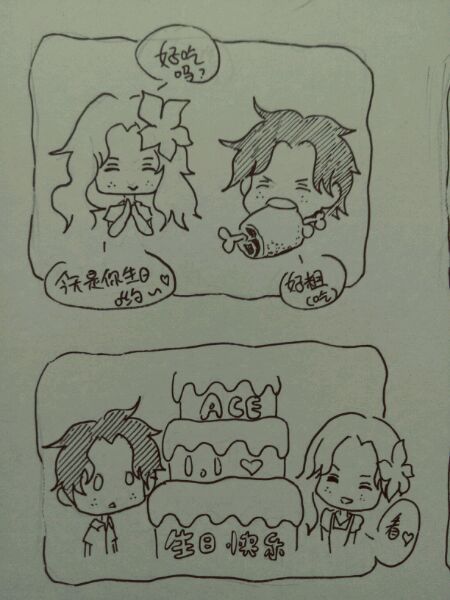 好吃
吗？
今天是你生日
哟～♡
好粗
(吃)
ACE
1.1 ♡
生日·快乐
看♡